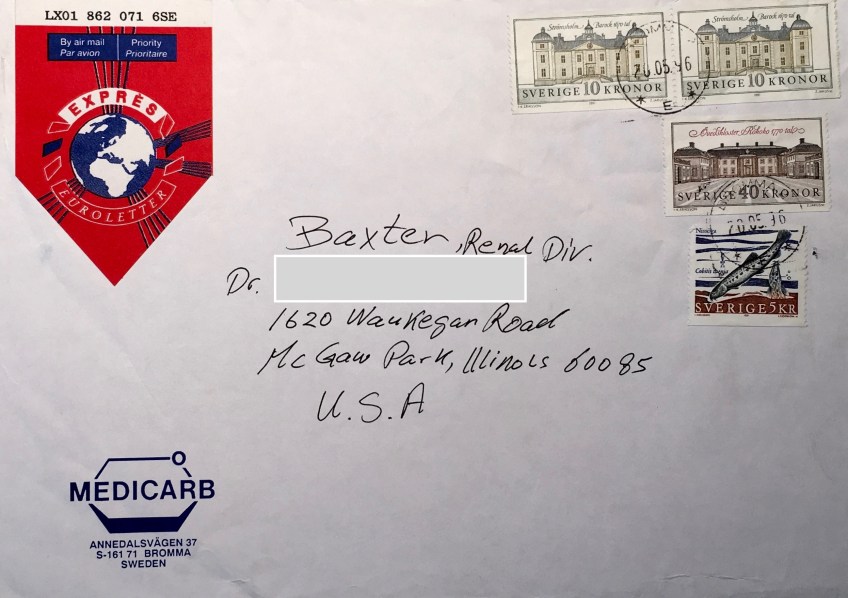 LX01 862 071 6SE
By air mail
Par avion
Priority
Prioritaire
EXPRÈS
EUROLETTER
Strömsholm Barock 1670 tal
SVERIGE 10 KRONOR
Strömsholm Barock 1670 tal
SVERIGE 10 KRONOR
20.05.96
E
Rokoko 1770 tal
SVERIGE 40 KRONOR
20.05.96
Cobitis taenia
SVERIGE 5KR
Baxter, Renal Div.
Dr.
1620 Waukegan Road
McGaw Park, Illinois 60085
U.S.A
MEDICARB
ANNEDALSVÄGEN 37
S-161 71 BROMMA
SWEDEN